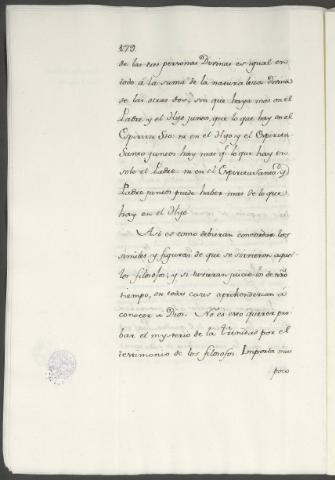 179.
de las tres personas Divinas es igual en
todo á la suma de la naturaleza divina
de las otras dos; sin que haya mas en el
Padre y el Hijo juntos, que lo que hay en el
Espiritu Sto: ni en el Hijo y el Espiritu
Santo juntos hay mas q. lo que hay en
solo el Padre: ni en el Espiritu Santo y
Padre juntos puede haber mas de lo que
hay en el Hijo.
Asi es como debieran considerar los
similes y figuras de que se sirvieron aque-
llos filosofos; y si tuvieran juicio los de nro
tiempo, en todas cosas aprehenderian á
conocer a Dios. No es esto querer pro-
bar el mysterio de la Trinidad por el
testimonio de los filosofos. Importa mui
poco